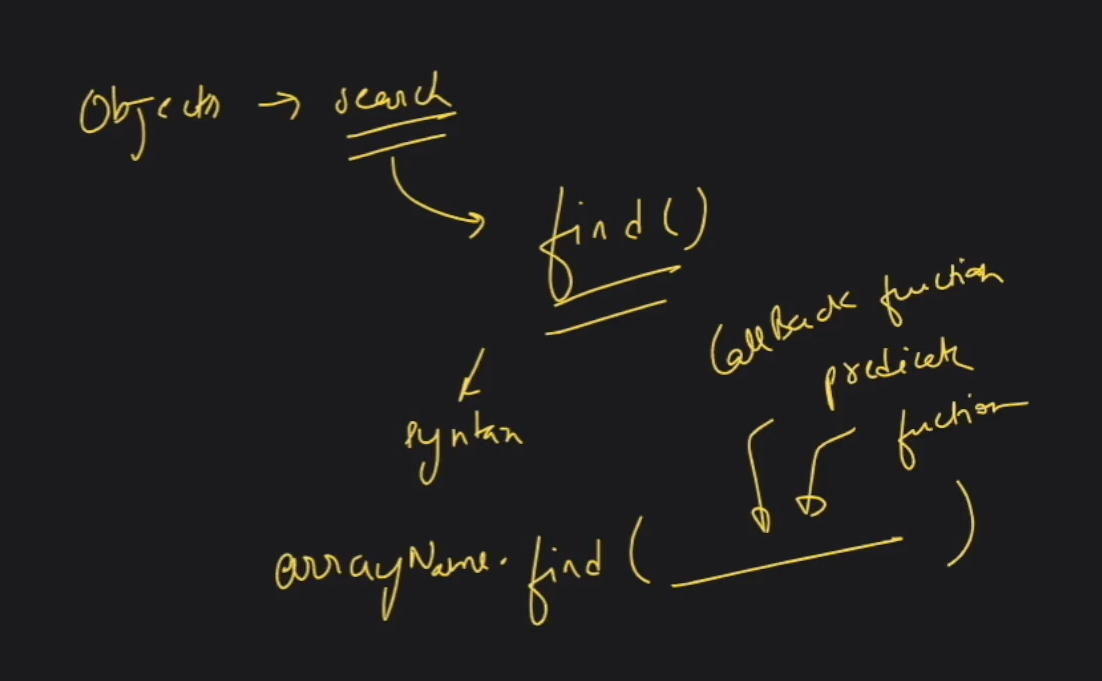 Objects → search
find()
syntax
CallBack function
predicate
fuction
arrayName.find( ______ )